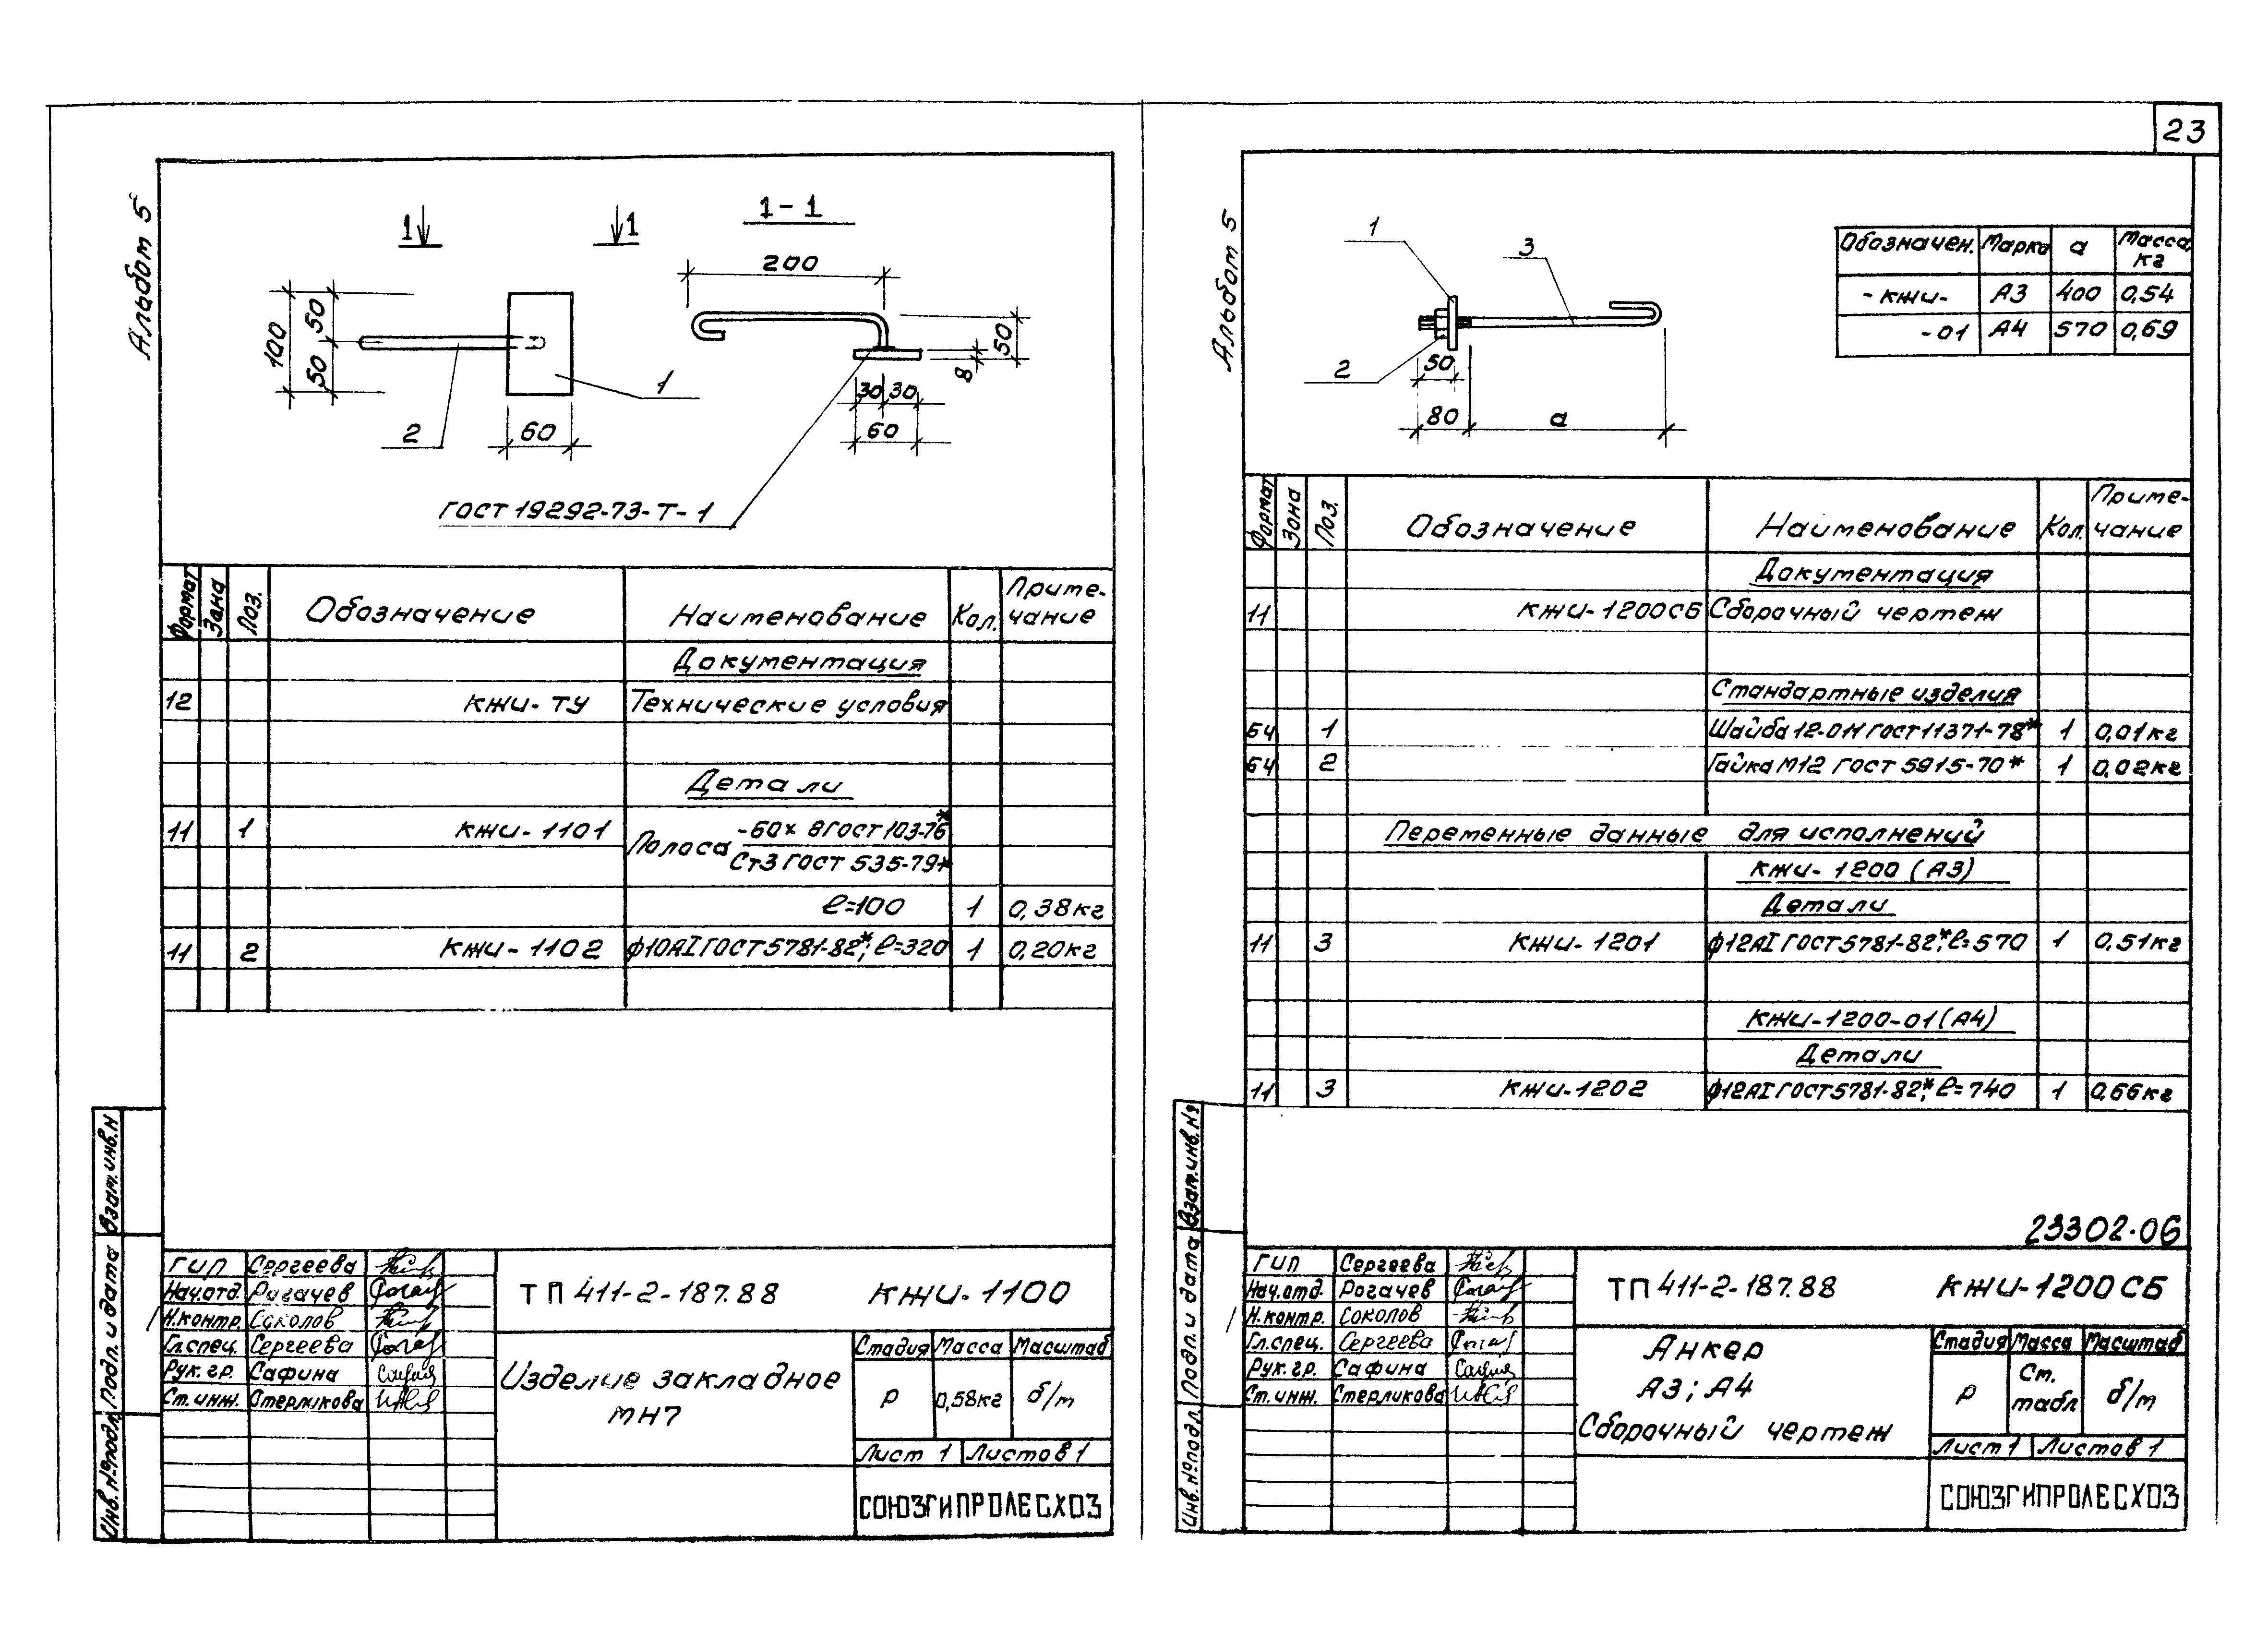 23
Альбом 5
1 1
1-1
200
100
50
50
60
2
1
50
8
30 30
60
ГОСТ 19292-73-Т-1
Формат Зона Поз. Обозначение Наименование Кол. Примечание
Документация
12 КЖИ-ТУ Технические условия
Детали
11 1 КЖИ-1101 Полоса -60×8 ГОСТ 103-76*
Ст3 ГОСТ 535-79*
ℓ=100 1 0,38кг
11 2 КЖИ-1102 ф10АI ГОСТ 5781-82*; ℓ=320 1 0,20кг
Взам.инв.N
Подп. и дата
Инв.№подл.
ГИП Сергеева
Нач.отд. Рогачев
Н.контр. Соколов
Гл.спец. Сергеева
Рук.гр. Сафина
Ст.инж. Стерликова
ТП 411-2-187.88 КЖИ-1100
Изделие закладное
МН7
Стадия Масса Масштаб
Р 0,58кг б/м
Лист 1 Листов 1
СОЮЗГИПРОЛЕСХОЗ
Альбом 5
1
3
2
50
80
а
Обозначен. Марка а Масса кг
-КЖИ- А3 400 0,54
-01 А4 570 0,69
Формат Зона Поз. Обозначение Наименование Кол. Примечание
Документация
11 КЖИ-1200СБ Сборочный чертеж
Стандартные изделия
БЧ 1 Шайба 12-011 ГОСТ 11371-78* 1 0,01кг
БЧ 2 Гайка М12 ГОСТ 5915-70* 1 0,02кг
Переменные данные для исполнений
КЖИ-1200 (А3)
Детали
11 3 КЖИ-1201 ф12АI ГОСТ 5781-82*; ℓ=570 1 0,51кг
КЖИ-1200-01 (А4)
Детали
11 3 КЖИ-1202 ф12АI ГОСТ 5781-82*; ℓ=740 1 0,66кг
23302-06
Взам.инв.№
Подп. и дата
Инв.№подл.
ГИП Сергеева
Нач.отд. Рогачев
Н.контр. Соколов
Гл.спец. Сергеева
Рук.гр. Сафина
Ст.инж. Стерликова
ТП 411-2-187.88 КЖИ-1200СБ
Анкер
А3; А4
Сборочный чертеж
Стадия Масса Масштаб
Р Ст. табл б/м
Лист 1 Листов 1
СОЮЗГИПРОЛЕСХОЗ